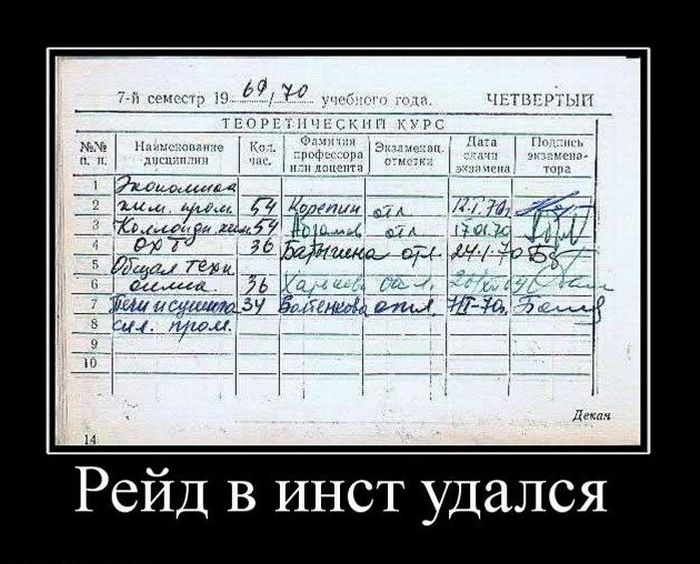 7-й семестр 19 69/70 учебного года. ЧЕТВЕРТЫЙ
ТЕОРЕТИЧЕСКИЙ КУРС
№№ п. п. Наименование дисциплин Кол. час. Фамилия профессора или доцента Экзаменац. отметки Дата сдачи экзамена Подпись экзаменатора
1 Экономика
2 хим. пром. 54 Корепин отл 12.1.70г.
3 Коллоидн хим 54 Абрамов отл 17.01.70
4 ОХТ 36 отл. 24-1-70
5 Общая техн
6 36
7 Печи и сушила 34 отл.
8 сил. пром.
9
10
Декан
14
Рейд в инст удался